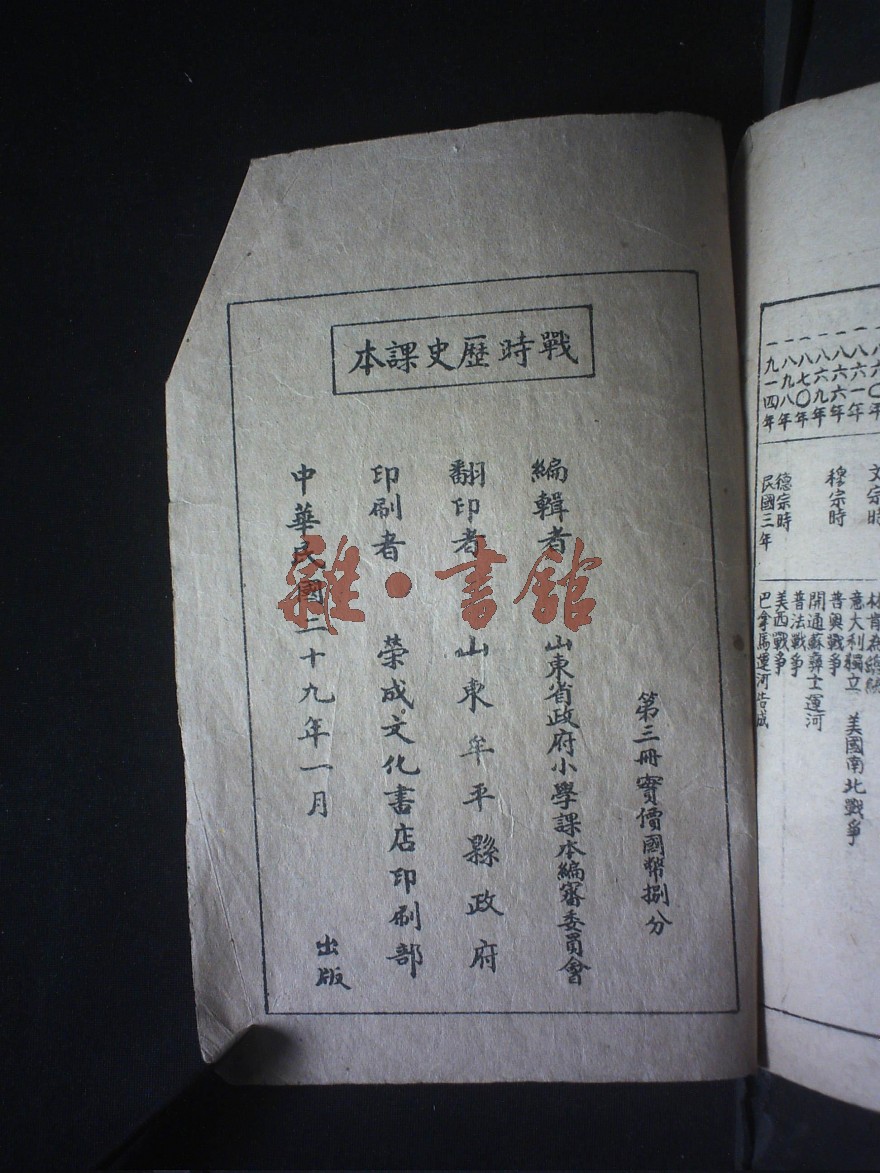 戰時歷史課本
第三冊實價國幣捌分
編輯者 山東省政府小學課本編審委員會
翻印者 山東牟平縣政府
印刷者 榮成文化書店印刷部
中華民國二十九年一月 出版
雜·書館
文宗時
一八六一年 意大利獨立 美國南北戰爭
一八六六年 穆宗時 普奧戰爭
一八六九年 開通蘇彝士運河
一八七〇年 普法戰爭
一八九八年 德宗時 美西戰爭
一九一四年 民國三年 巴拿馬運河告成